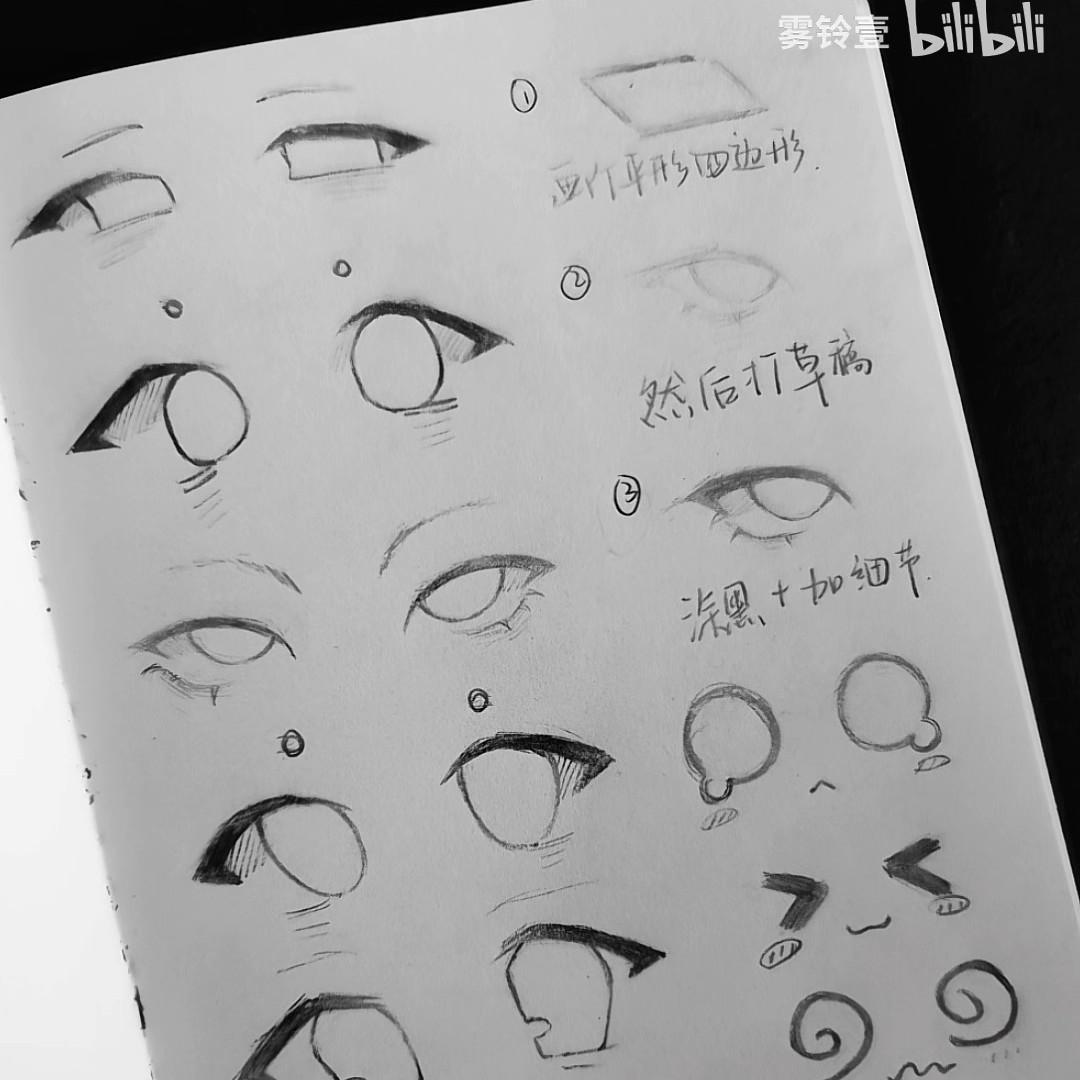 雾铃壹 bilibili
①
画个平形四边形.
②
然后打草稿
③
涂黑+加细节.